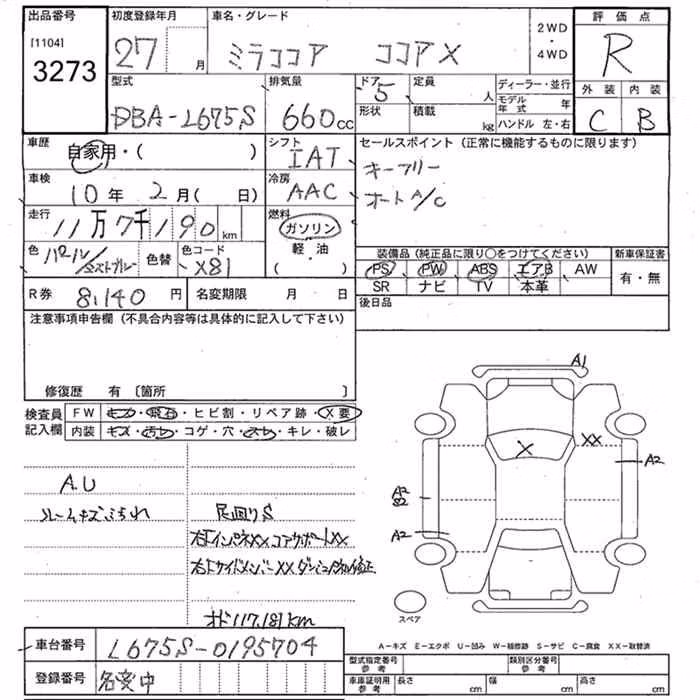 出品番号 初度登録年月 車名・グレード 2WD・4WD 評価点
[1104] 3273 27 月 ミラココア ココアX R
型式 排気量 ドア 定員 ディーラー・並行 外装 内装
DBA-L675S 660cc 5 人 モデル年式 年 C B
形状 積載 kg ハンドル 左・右
車歴 シフト セールスポイント（正常に機能するものに限ります）
自家用・（ IAT キーフリー
車検 冷房 オートA/C
10年 2月（ 日） AAC
走行 燃料
11万7千190km ガソリン
色 色替 色コード 軽油
X81 （ ）
装備品（純正品に限り○をつけてください） 新車保証書
PS PW ABS エアB AW 有・無
SR ナビ TV 本革
R券 8,140円 名変期限 月 日 後日品
注意事項申告欄（不具合内容等は具体的に記入して下さい）
修復歴 有〔箇所 〕
検査員記入欄 FW キズ・飛石・ヒビ割・リペア跡・X要
内装 キズ・汚れ・コゲ・穴・スレ・キレ・破レ
A1
X XX
A2
A2
S2
A2
A.U
足廻りS
オド117,181km
スペア
A－キズ E－エクボ U－凹み W－補修跡 S－サビ C－腐食 XX－取替済
車台番号 L675S-0195704
登録番号 名変中
型式指定番号 参考 類別区分番号 参考
車庫証明用 参考 長さ cm 幅 cm 高さ cm